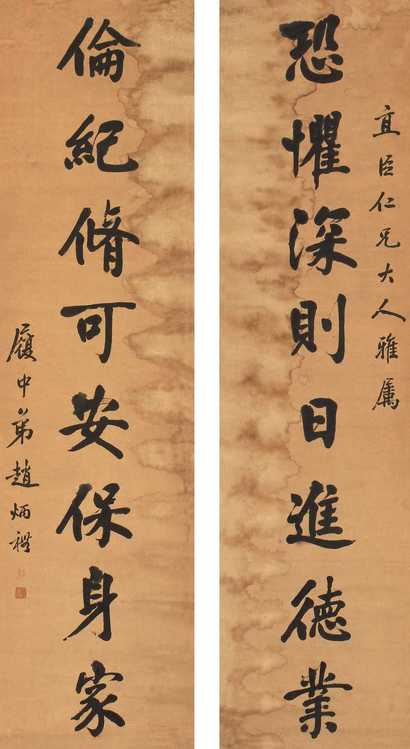 宜臣仁兄大人雅属
恐懼深則日進德業
倫紀脩可安保身家
履中弟趙炳禮